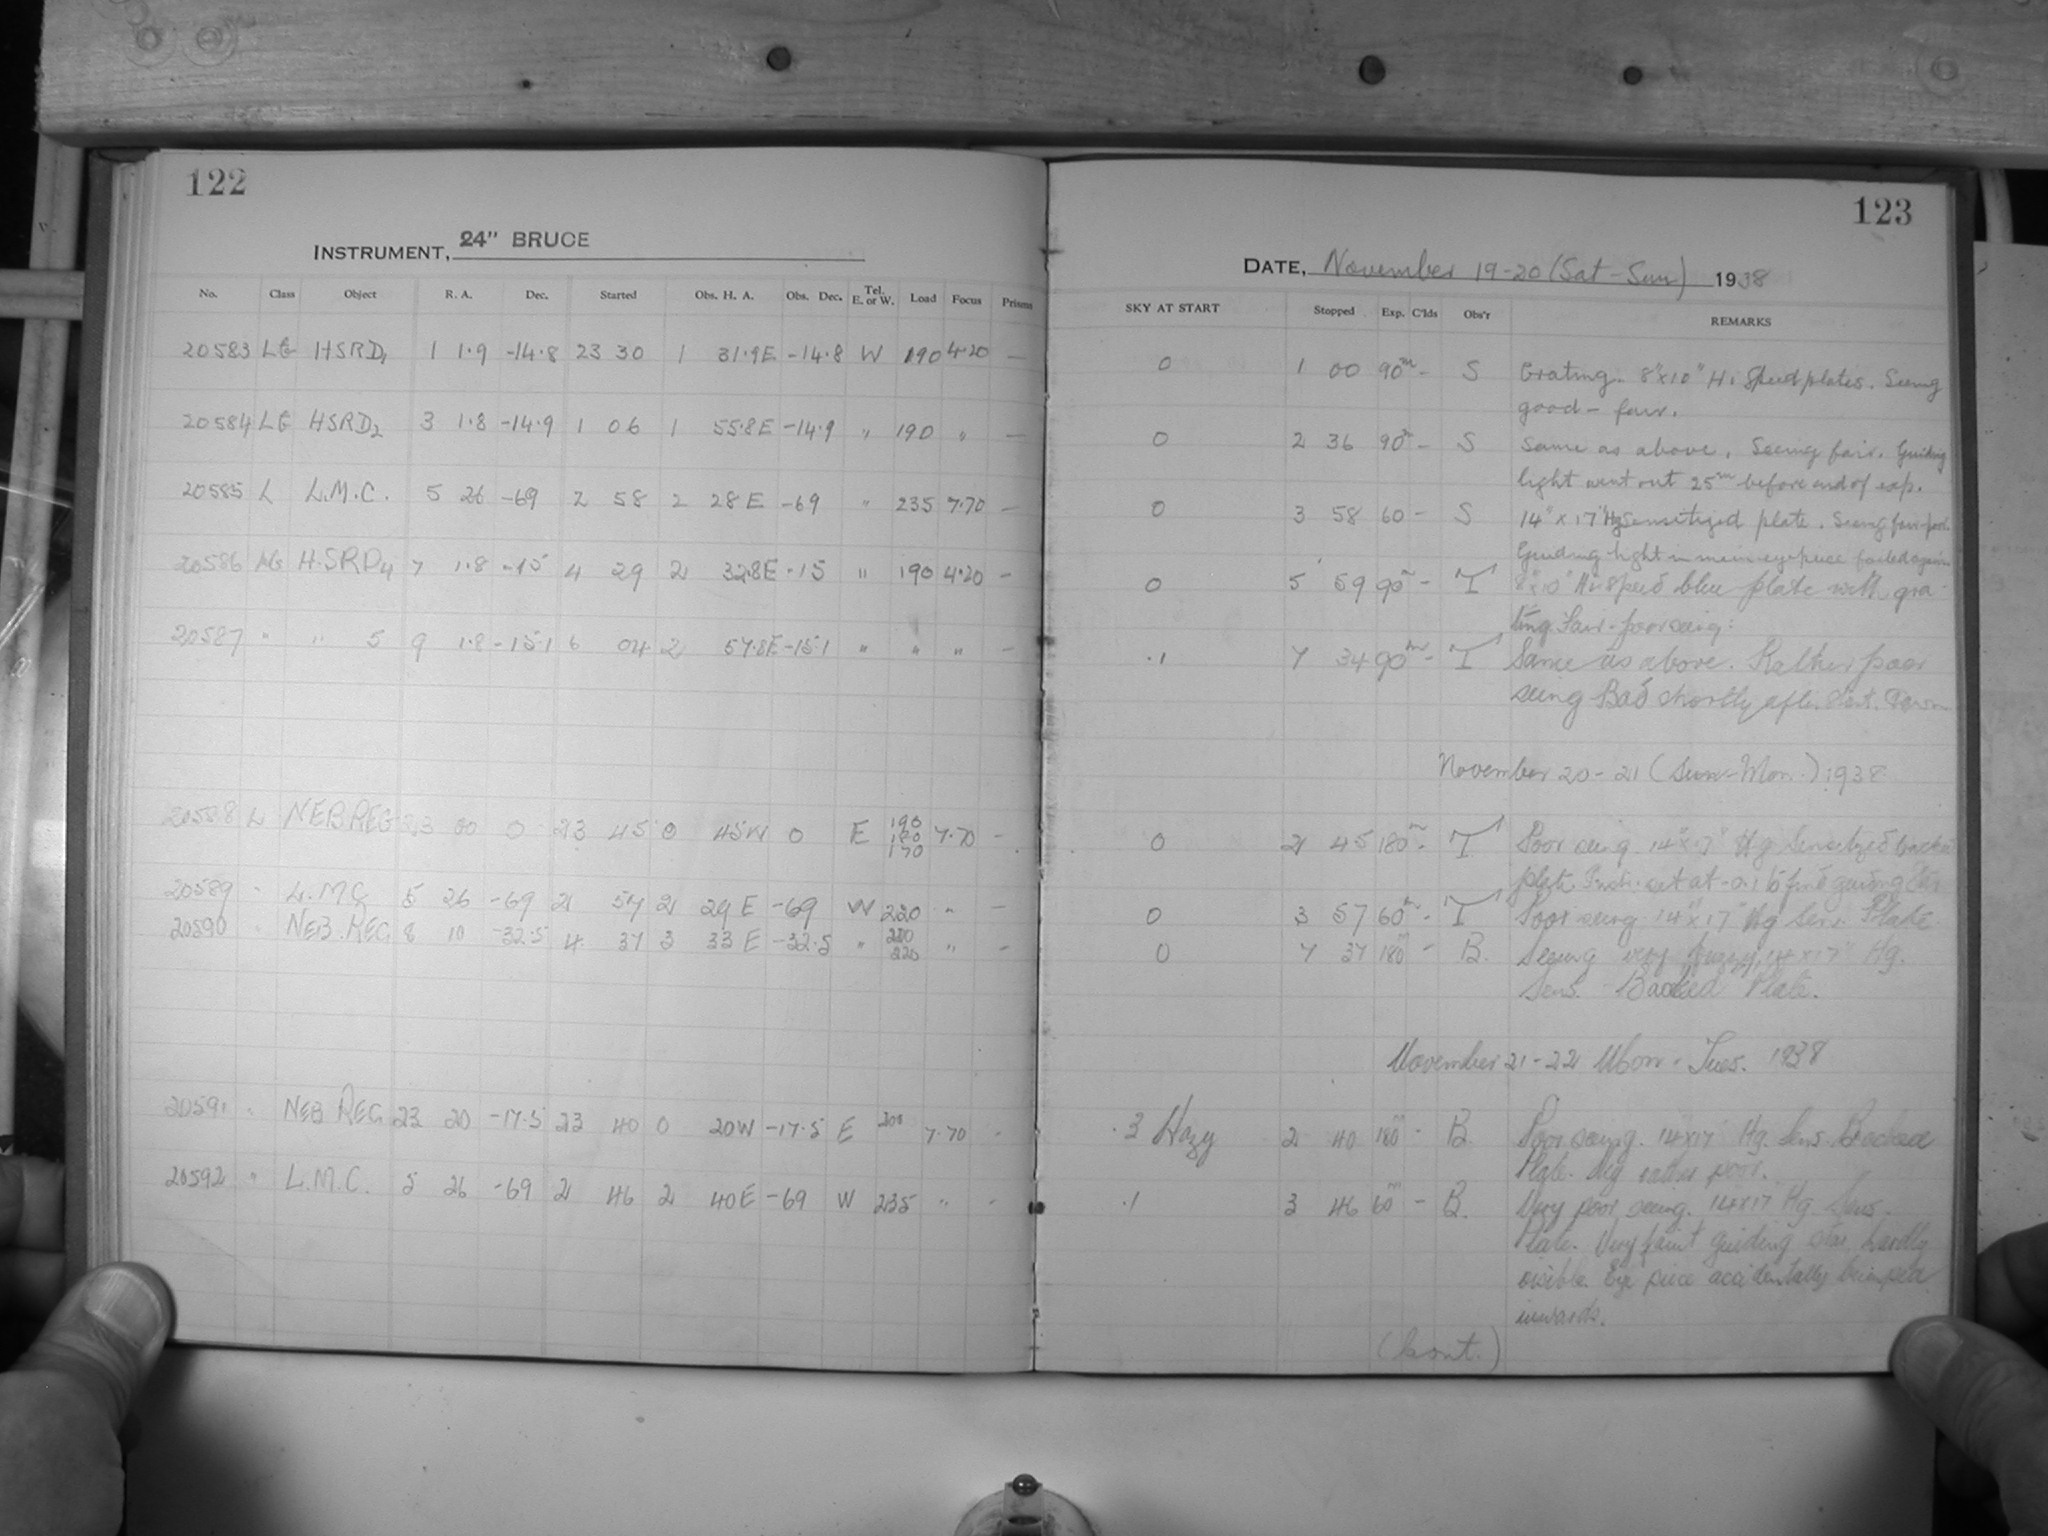 122
INSTRUMENT, 24" BRUCE
No. Class Object R. A. Dec. Started Obs. H. A. Obs. Dec. Tel. E. or W. Load Focus Prisms
20583 LG HSRD1 1 1.9 -14.8 23 30 1 31.9E -14.8 W 190 4.20 —
20584 LG HSRD2 3 1.8 -14.9 1 06 1 55.8E -14.9 " 190 " —
20585 L L.M.C. 5 26 -69 2 58 2 28E -69 " 235 7.70 —
20586 LG H.SRD4 7 1.8 -15 4 29 2 32.8E -15 " 190 4.20 —
20587 " " 5 9 1.8 -15.1 6 04 2 57.8E -15.1 " " " —
20588 L NEB REG 23 00 0 23 45 0 45W 0 E 190 180 170 7.70 —
20589 " L.MC 5 26 -69 2 57 2 29E -69 W 220 " —
20590 " NEB. REG 8 10 -32.5 4 37 3 33E -32.5 " 220 " —
20591 " NEB REG 23 20 -17.5 23 40 0 20W -17.5 E 200 7.70 -
20592 " L.M.C. 5 26 -69 2 46 2 40E -69 W 235 " -
123
DATE, November 19-20 (Sat-Sun) 1938
SKY AT START Stopped Exp. C'lds Obs'r REMARKS
0 1 00 90m - S Grating. 8"x10" Hi Speed plates. Seeing
good - fair.
0 2 36 90m - S Same as above. Seeing fair. Guiding
light went out 25m before end of exp.
0 3 58 60 - S 14" x 17" Hg Sensitized plate. Seeing fair-poor.
Guiding light in main eyepiece failed again
0 5 59 90m - T 8"x10" Hi Speed blue plate with gra-
ting Fair-poor seeing.
.1 7 34 90m - T Same as above. Rather poor
seeing Bad shortly after start.
November 20-21 (Sun-Mon.) 1938
0 2 45 180m - T Poor seeing 14"x17" Hg Sensitized backed
plate. set at -0.1 to find guiding star
0 3 57 60m - T Poor seeing 14"x17" Hg Sens. Plate
0 7 37 180m - B. Seeing very fuzzy, 14x17" Hg.
Sens. Backed Plate.
November 21-22 Mon.-Tues. 1938
.3 Hazy 2 40 180m - B Poor seeing. 14x17" Hg. Sens. Backed
Plate. rather poor.
.1 3 46 60m - B. Very poor seeing. 14x17 Hg. Sens.
Plate. Very faint guiding star hardly
visible. Eye piece accidentally bumped
inwards.
(Cont.)